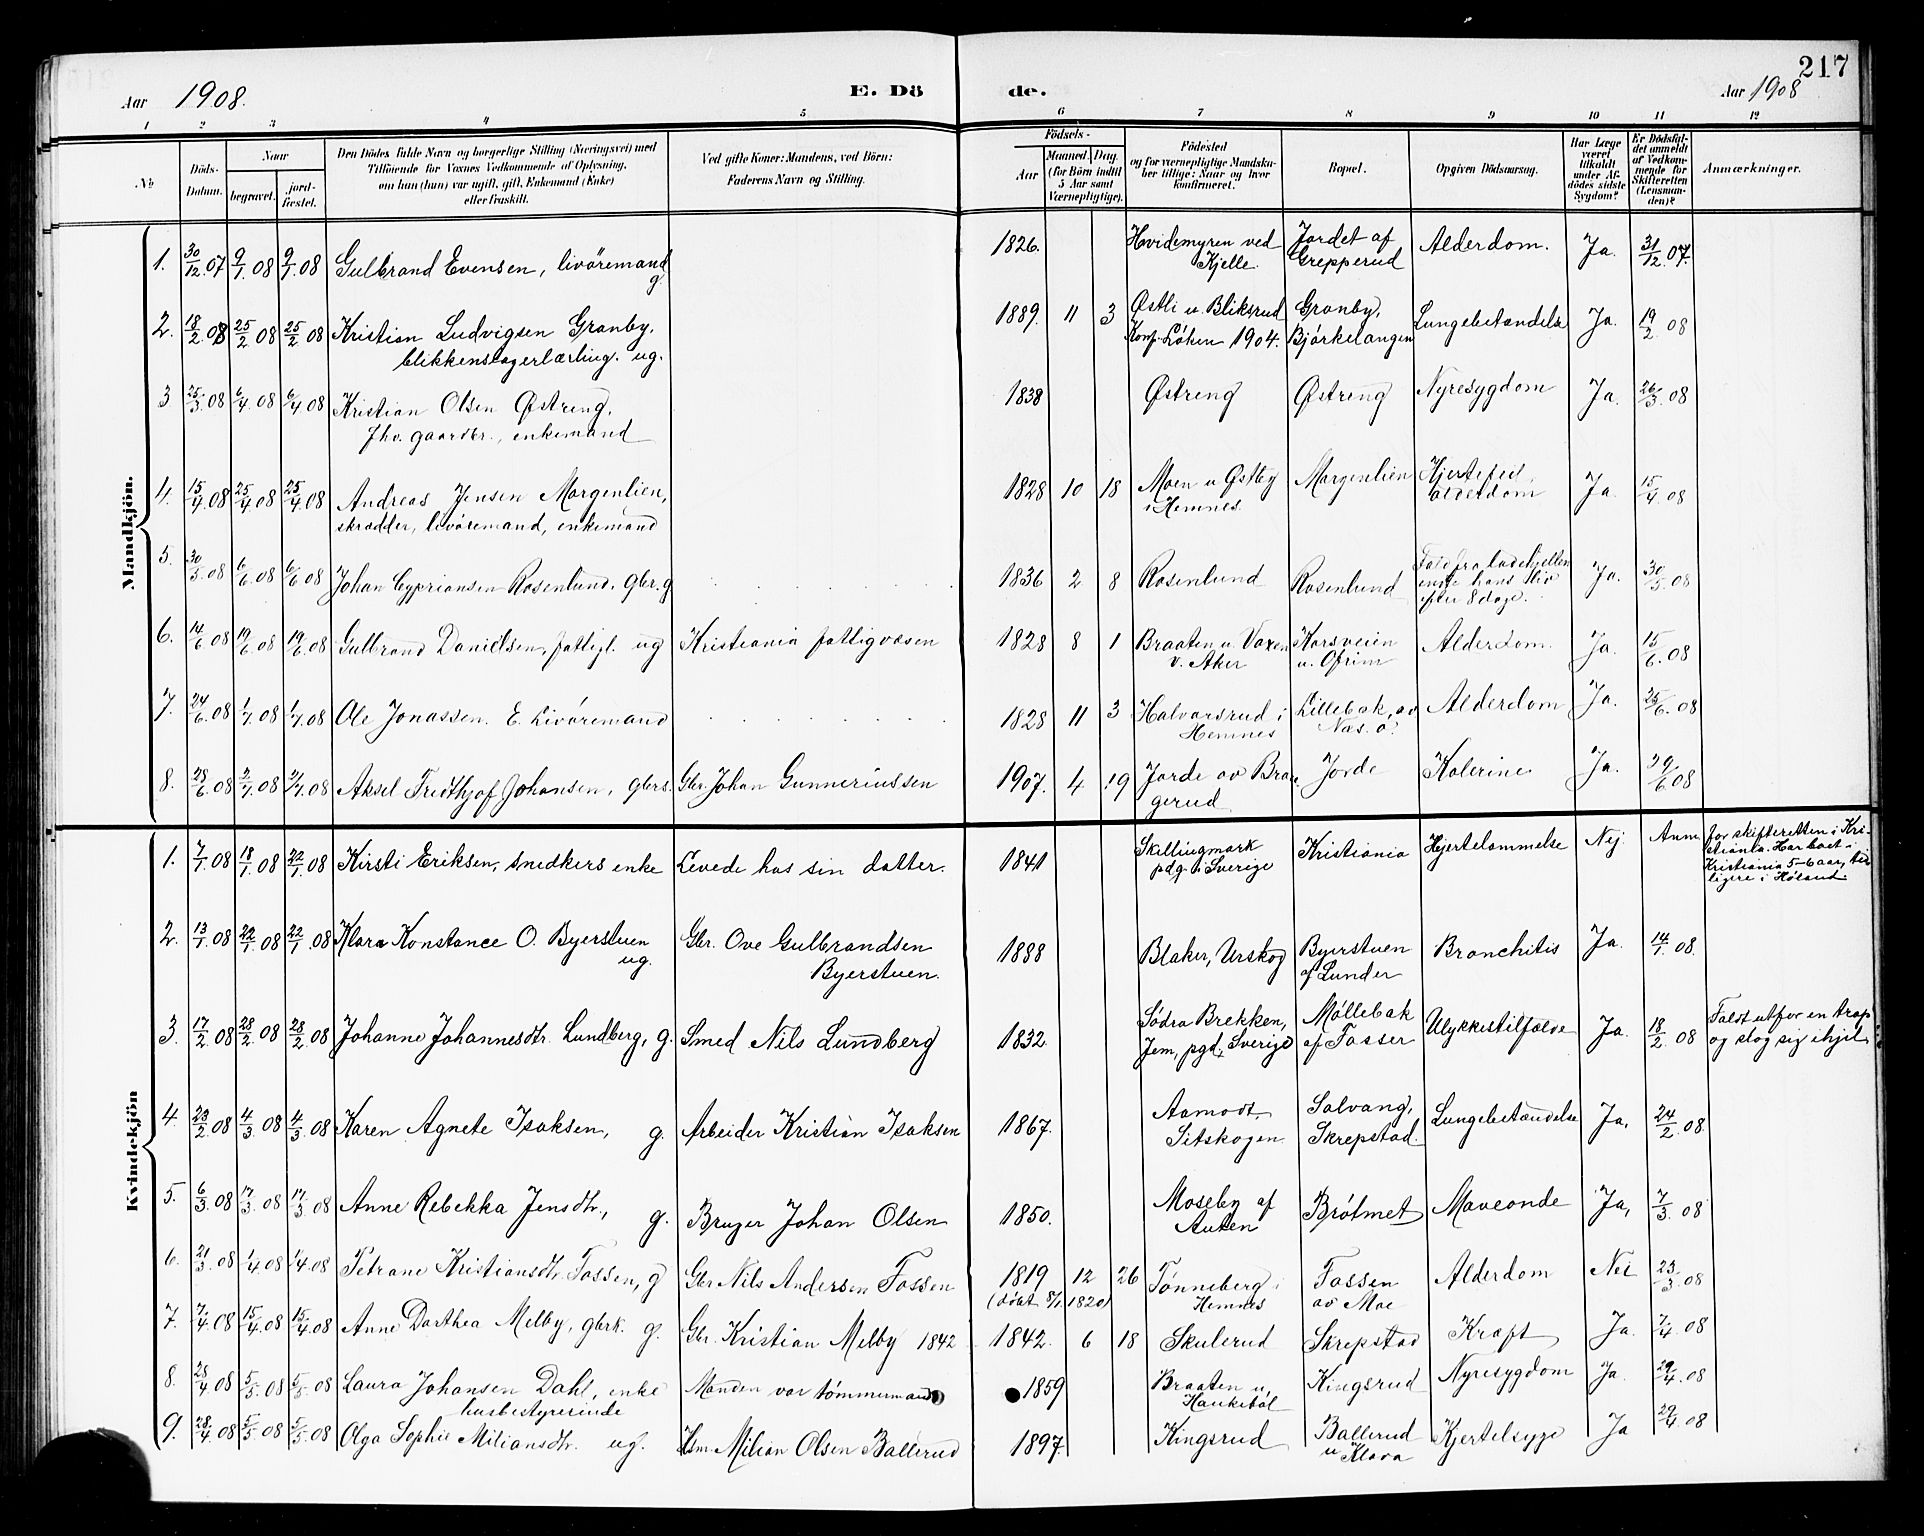 217
Aar 1908.
E. Dö
de.
Aar 1908
1 2 3 4 5 6 7 8 9 10 11 12
№
Döds-Datum.
Naar
begravet.
jord-fæstet.
Den Dödes fulde Navn og borgerlige Stilling (Næringsvei) med
Tilföiende for Voxnes Vedkommende af Oplysning,
om han (hun) var ugift, gift, Enkemand (Enke)
eller fraskilt.
Ved gifte Koner: Mandens, ved Börn:
Faderens Navn og Stilling.
Födsels-
Aar
Maaned. Dag.
(for Börn indtil
5 Aar samt
Værnepligtige).
Födested
og for værnepligtige Mandskaber
tillige: Naar og hvor
konfirmeret.
Bopæl.
Opgiven Dödsaarsag.
Har Læge
været
tilkaldt
under Afdödes
sidste
Sygdom?
Er Dödsfaldet
anmeldt
af Vedkommende
for
Skifteretten
(Lensmanden)?
Anmærkninger.
Mandkjön.
1. 30/12 07 9/1 08 9/1 08 Gulbrand Evensen, livöremand g. 1826. Hvidemyren ved Kjelle. Jordet af Grepperud Alderdom. Ja. 31/12 07.
2. 18/2 08 25/2 08 25/2 08 Kristian Ludvigsen Granby, blikkenslagerlærling. ug. 1889. 11 3 Østli u. Bliksrud Konf. Løken 1904. Granby, Bjørkelangen Lungebetændelse Ja. 19/2 08
3 25/3 08 6/4 08 6/4 08 Kristian Olsen Østreng, fhv. gaardbr., enkemand 1838 Østreng Østreng Nyresygdom Ja. 26/3 08
4. 15/4 08 25/4 08 25/4 08 Andreas Jensen Morgenlien, skrædder, livöremand, enkemand 1828 10 18 Moen u Østby i Hemnes. Morgenlien Hjertefeil, alderdom Ja. 15/4 08
5. 30/5 08 6/6 08 6/6 08 Johan Cypriansen Rosenlund, gbr. g 1836 2 8 Rosenlund Rosenlund Fald fra ladehjellen endte hans liv efter 8 dage. Ja. 30/5 08
6. 14/6 08 19/6 08 19/6 08 Gulbrand Danielsen, fattigl. ug Kristiania fattigvæsen 1828 8 1 Braaten u. Voxen v. Aker Korsveien u. Ofrim Alderdom. Ja. 15/6 08
7. 24/6 08 1/7 08 1/7 08 Ole Jonassen. E. Livöremand 1828 11 3 Halvarsrud i Hemnes Lillebak, av Næs. ö. Alderdom Ja. 25/6 08
8. 28/6 08 2/7 08 2/7 08 Aksel Fridthjof Johansen, gbrs. Gbr. Johan Gunneriussen 1907. 4 19 Jorde av Bragerud Jorde Kolerine Ja. 29/6 08
Kvindekjön
1. 7/1 08 18/1 08 22/1 08 Kirsti Eriksen, snedkers enke Levede hos sin datter. 1841 Skillingmark pdg. i Sverige Kristiania Hjertelammelse Nej. Anm. for skifteretten i Kristiania. Har boet i Kristiania 5-6 aar, tidligere i Høland.
2. 13/1 08 22/1 08 22/1 08 Klara Konstance O. Byerstuen ug. Gbr. Ove Gulbrandsen Byerstuen. 1888 Blaker, Urskog Byerstuen af Lunder Bronchitis Ja. 14/1 08.
3. 17/2 08 28/2 08 28/2 08 Johanne Johannesdtr. Lundberg, g. Smed Nils Lundberg 1832. Södra Brekken, Jem, pgd. Sverige Møllebak af Fosser Ulykkestilfælde Ja. 18/2 08 Faldt utfor en trap og slog sig ihjel.
4. 23/2 08 4/3 08 4/3 08 Karen Agnete Isaksen, g. Arbeider Kristian Isaksen 1867. Aamodt, Setskogen Solvang, Skrepstad. Lungebetændelse Ja, 24/2 08.
5. 6/3 08 17/3 08 17/3 08 Anne Rebekka Jensdtr., g. Bruger Johan Olsen 1850. Moseby af Auten Brøtmet Maveonde Ja, 7/3 08
6. 21/3 08 1/4 08 1/4 08 Petrane Kristiansdtr. Fossen, g Gbr Nils Andersen Fossen 1819 12 26 (döbt 8/1 1820) Tønneberg i Hemnes Fossen av Moe Alderdom Nei 23/3 08
7. 7/4 08 15/4 08 15/4 08 Anne Dorthea Melby, gbrk. g. Gbr. Kristian Melby 1842 1842. 6 18 Skulerud Skrepstad Kræft Ja. 7/4 08
8. 28/4 08 5/5 08 5/5 08 Laura Johansen Dahl, enke husbestyrerinde Manden var tömmermand 1859 Braaten u, Haukebøl Kingsrud Nyresygdom Ja. 29/4 08
9. 28/4 08 5/5 08 5/5 08 Olga Sophie Miliansdtr. ug. Hsm. Milian Olsen Ballerud 1897. Kingsrud Ballerud u Klava Kjertelsyge Ja 29/4 08